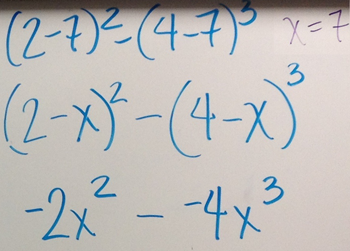 (2-7)²-(4-7)³ x=7
(2-x)²-(4-x)³
-2x² - -4x³